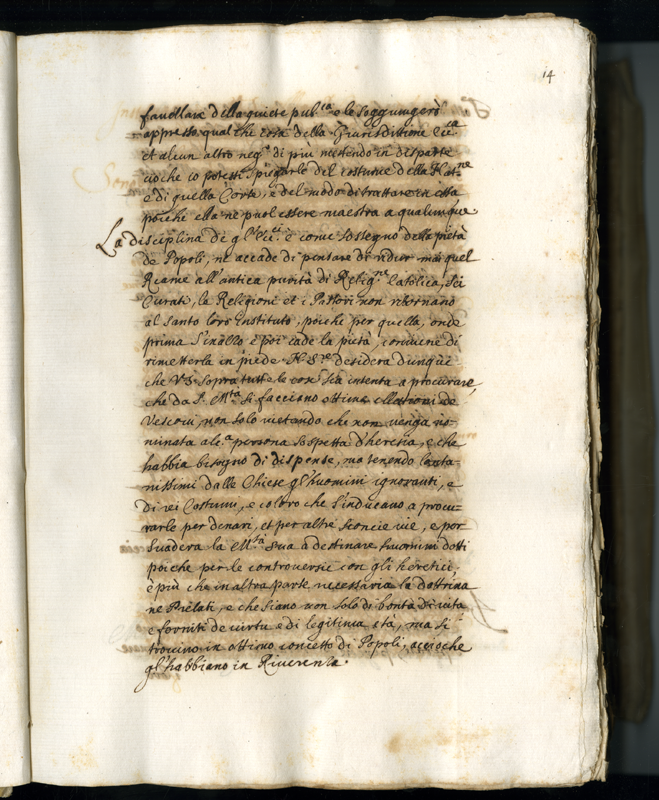 14
favellare della quiete pub.ca e le soggiungerò
appresso qual che cosa della Giurisdittione Ecc.ca
et alcun altro neg.o di più mettendo in disparte
ciò che io potessi spiegarle del costume della Nat.ne
e di quella Corte, e del modo di trattare in essa
poiche ella ne può essere maestra a qualunque.
La disciplina de gl' Ecc.ci è come sostegno della pietà
de Popoli, ne accade di pensare di ridur mai quel
Reame all'antica purità di Relig.ne Catolica, se i
Curati, le Religioni et i Pastori non ritornano
al Santo loro instituto, poiche per quella, onde
prima s'inalzò e poi cade la pietà, conviene di
rimetterla in piede. N. S.re desidera dunque
che V.S. sopra tutte le cose sia intenta a procurare,
che da S. M.tà si facciano ottime elettioni de
Vescovi, non solo vietando che non venga no-
minata alc.a persona sospetta d'heresia, e che
habbia bisogno di dispense, ma tenendo lonta-
nissimi dalle Chiese gl'huomini ignoranti, e
di rei Costumi, e coloro che s'inducano a procu-
rarle per denari, et per altre sconcie vie, e per
suadera la M.tà sua a destinare huomini dotti
poiche per le controversie con gli heretici,
è più che in altra parte necessaria la dottrina
ne Prelati, e che siano non solo di bontà di vita
e forniti di virtù e di legitima età, ma si
trovino in ottimo concetto di Popoli, acciòche
gl'habbiano in Riverenza.